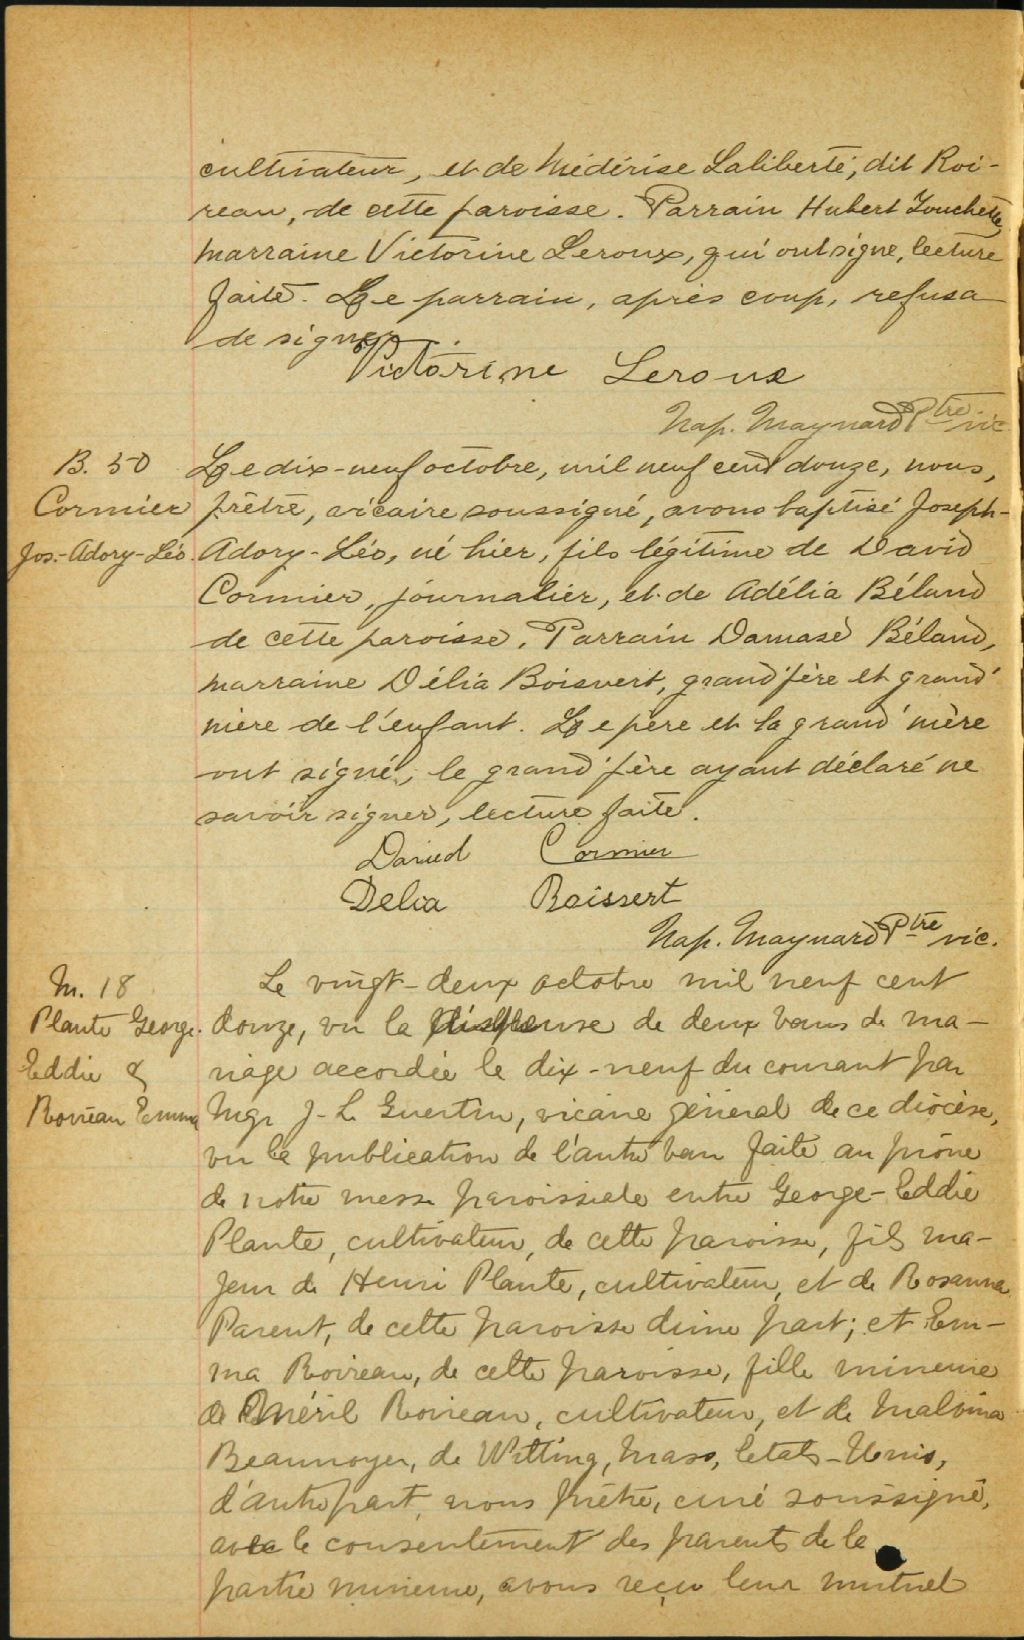 cultivateur, et de Médérise Laliberté, dit Roi-
reau, de cette paroisse. Parrain Hubert Touchette,
marraine Victorine Leroux, qui ont signé, lecture
faite. Le parrain, après coup, refusa
de signer
Victorine Leroux
Nap. Maynard Ptre vic
B. 50
Cormier
Jos.-Adory-Léo.
Le dix-neuf octobre, mil neuf cent douze, nous,
prêtre, vicaire soussigné, avons baptisé Joseph-
Adory-Léo, né hier, fils légitime de David
Cormier, journalier, et de Adélia Béland
de cette paroisse. Parrain Damase Béland,
marraine Délia Boisvert, grand'père et grand'
mère de l'enfant. Le père et la grand'mère
ont signé, le grand'père ayant déclaré ne
savoir signer, lecture faite.
David Cormier
Delia Boissert
Nap. Maynard Ptre vic.
M. 18
Plante George-
Eddie &
Roireau Emma
Le vingt-deux octobre mil neuf cent
douze, vu la dispense de deux bans de ma-
riage accordée le dix-neuf du courant par
Mgr J-L Guertin, vicaire général de ce diocèse,
vu la publication de l'autre ban faite au prône
de notre messe paroissiale entre George-Eddie
Plante, cultivateur, de cette paroisse, fils ma-
jeur de Henri Plante, cultivateur, et de Rosanna
Parent, de cette paroisse d'une part; et Em-
ma Roireau, de cette paroisse, fille mineure
de Roireau, cultivateur, et de Malvina
Beaunoyer, de Mass, Etats-Unis,
d'autre part, nous prêtre, curé soussigné,
avec le consentement des parents de la
partie mineure, avons reçu leur mutuel